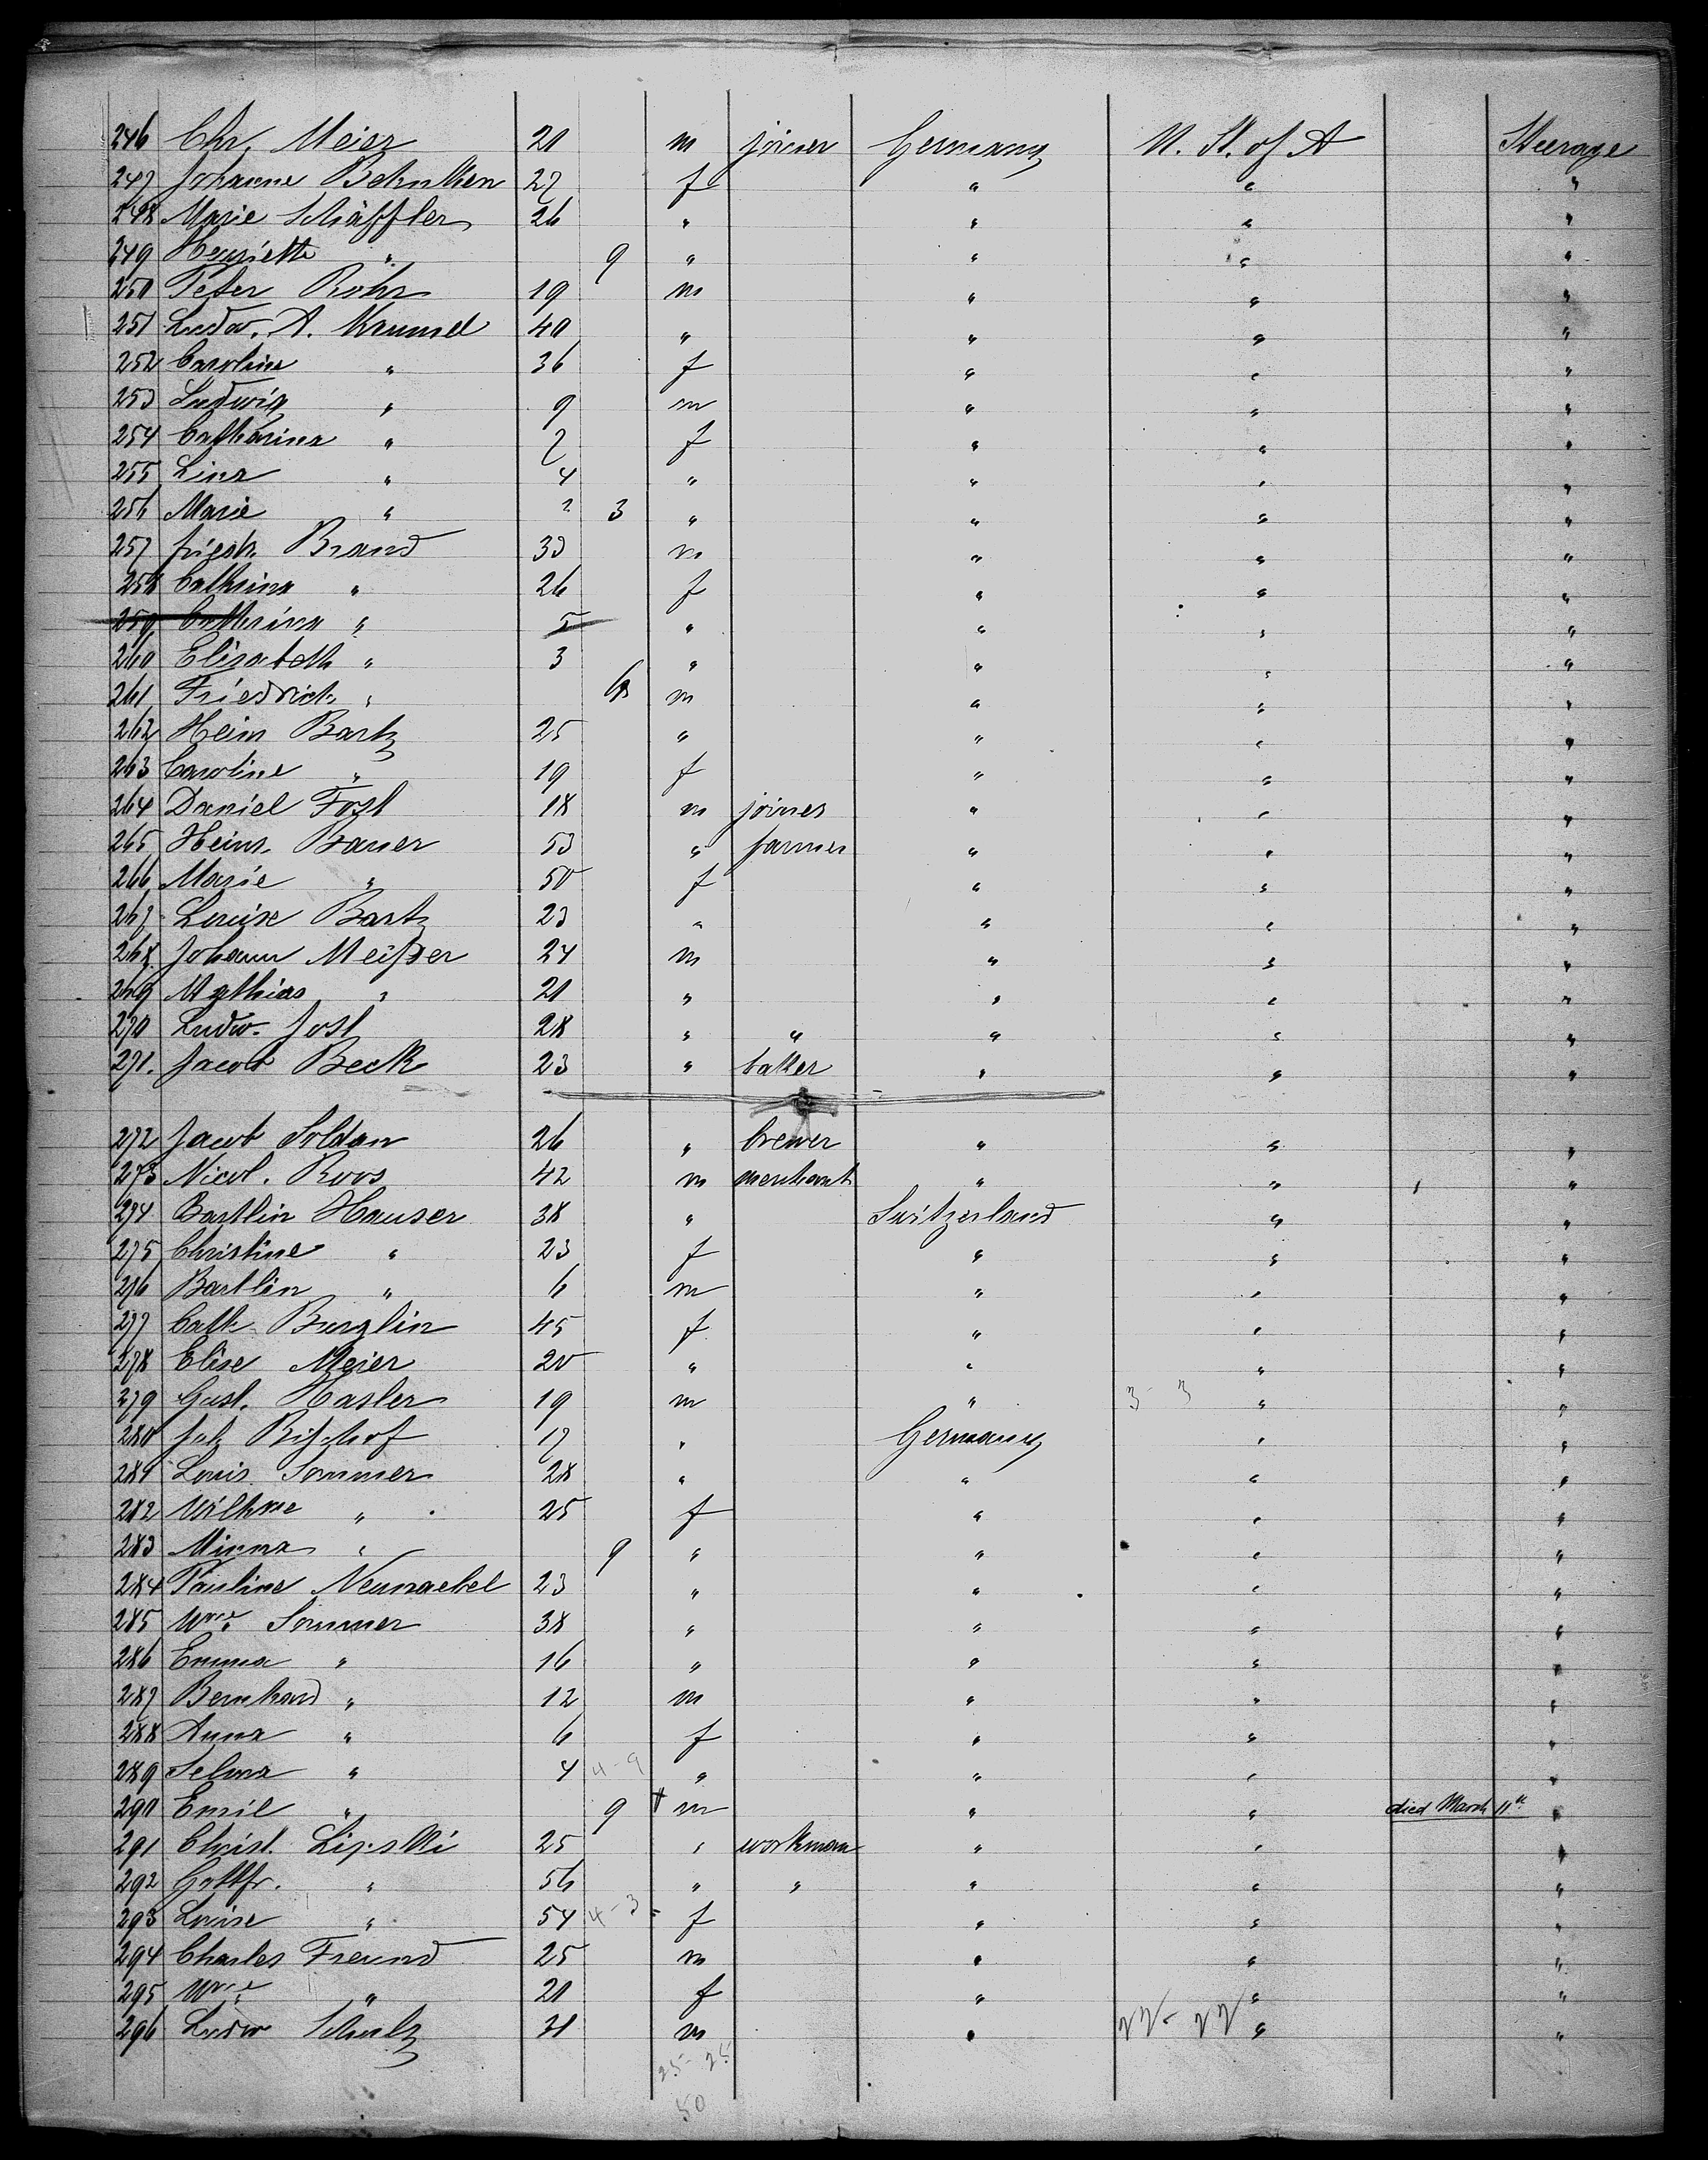 246 Chr. Meier 21 m joiner Germany U. St. of A Steerage
247 Johanne Behnken 27 f " " "
248 Marie Schäffler 26 " " " "
249 Henriette " 9 " " " "
250 Peter Rohr 19 m " " "
251 Ludw. A. Kummel 40 " " " "
252 Caroline " 36 f " " "
253 Ludwig " 9 m " " "
254 Catharina " 7 f " " "
255 Lina " 4 " " " "
256 Marie " 2 3 " " " "
257 Friedr. Brand 33 m " " "
258 Cathrina " 26 f " " "
259 Cathrina " 5 " " " "
260 Elisabeth " 3 " " " "
261 Friedrich " 6 m " " "
262 Heinr Bartz 25 " " " "
263 Caroline " 19 f " " "
264 Daniel Fost 18 m joiner " " "
265 Heinr. Bauer 53 " farmer " " "
266 Marie " 50 f " " "
267 Louise Bartz 23 " " " "
268 Johann Meißer 24 m " " "
269 Mathias " 21 " " " "
270 Ludw. Jost 28 " " " " "
271. Jacob Beck 23 " baker " " "
272 Jacob Soldan 26 " brewer " " "
273 Nicol. Roos 42 m merchant " " "
274 Bartlin Hauser 38 " Switzerland " "
275 Christine " 23 f " " "
276 Bartlin " 6 m " " "
277 Cath. Burglin 45 f " " "
278 Elise Meier 20 " " " "
279 Gust. Hasler 19 m " 3 - 3 " "
280 Bischof 17 " Germany " "
281 Louis Sommer 28 " " " "
282 Wilhme " 25 f " " "
283 Minna " 9 " " " "
284 Pauline Neunaebel 23 " " " "
285 Wme Sommer 38 " " " "
286 Emma " 16 " " " "
287 Bernhard " 12 m " " "
288 Anna " 6 f " " "
289 Selma " 4 4-9 " " " "
290 Emil " 9 † m " " died March 11th "
291 Christ. Lipski 25 " workman " " "
292 Gottfr. " 56 " " " " "
293 Louise " 54 4-3 f " " "
294 Charles Freund 25 m " " "
295 Wme " 21 f " " "
296 Ludw Schultz m " 22 - 22 " "
25 - 25
50